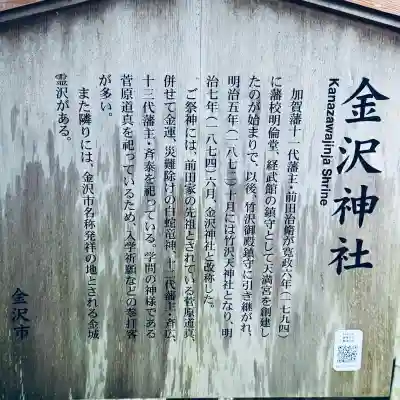 金沢神社
Kanazawajinja Shrine
加賀藩十一代藩主・前田治脩が寛政六年(一七九四)
に藩校明倫堂、経武館の鎮守として天満宮を創建し
たのが始まりで、以後、竹沢御殿鎮守に引き継がれ、
明治五年(一八七二)十月には竹沢天神社となり、明
治七年(一八七四)六月、金沢神社と改称した。
ご祭神には、前田家の先祖とされている菅原道真、
併せて金運、災難除けの白蛇龍神、十二代藩主・斉広、
十三代藩主・斉泰を祀っている。学問の神様である
菅原道真を祀っているため、入学祈願などの参拝客
が多い。
また隣りには、金沢市名称発祥の地とされる金城
霊沢がある。
金沢市